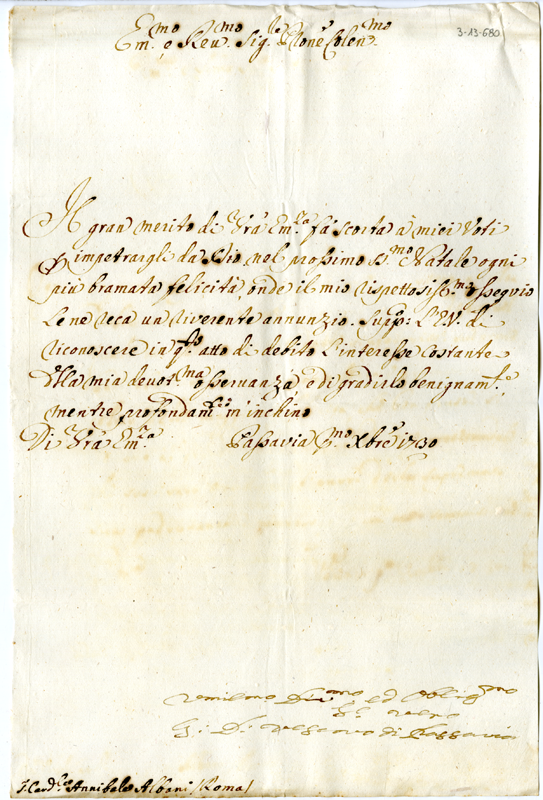 Em.mo e Reu.mo Sig.re Prone Colen.mo
3-13-680
Il gran merito di Vrã Em.za fà scorta à miei Voti
p impetrargli da Dio nel prossimo S.mo Natale ogni
più bramata felicità, onde il mio rispettosiss.mo ossequio
Le ne reca un riverente annunzio. Supp: L'E.V. di
riconoscere in q.sto atto di debito l'interesse costante
della mia deuot.ma osseruanza, e di gradirlo benignam.te
mentre profondam.te m'inchino
Di Vrã Em.za Passavia p.mo Xbre 1730
ed
vero
G: D: vescovo di Passavia
Card.le Annibale Albani /Roma/